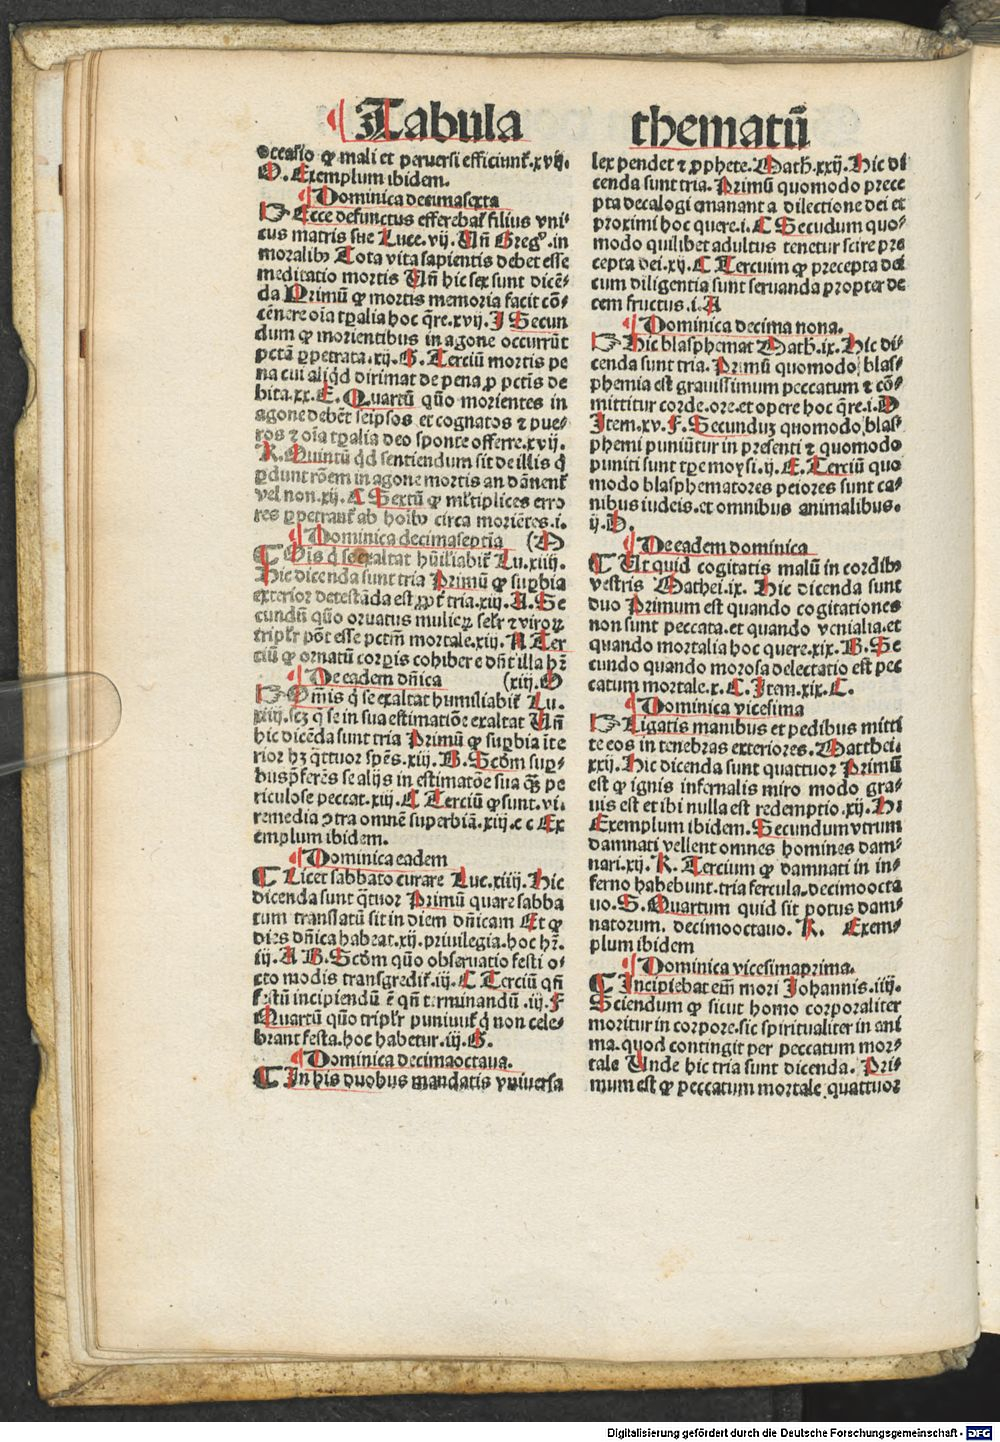 ¶ Tabula thematū
occasio ꝙ mali et peruersi efficiunt᷑.xvij.
O. Exemplum ibidem.
¶ Dominica decimasexta
☞ Ecce defunctus efferebat᷑ filius vni⸗
cus matris sue Luce.vij. Uñ Gregꝰ.in
moralibꝫ Tota vita sapientis debet esse
meditatio mortis Uñ hic sex sunt dicē⸗
da Primū ꝙ mortis memoria facit cō⸗
tēnere oīa tꝑalia hoc q̄re.xvij. J Secun
dum ꝙ morientibus in agone occurrūt
pctā ꝑpetrata.xij. G. Terciū mortis pe
na cui aliq̇d dirimat de pena ꝓ pctis de
bita.xx. E. Quartū quō morientes in
agone debēt seipsos et cognatos ⁊ pue⸗
ros ⁊ oīa tꝑalia deo sponte offerre.xvij.
K. Quintū q̇d sentiendum sit de illis q̇
ꝑdunt rōem in agone mortis an dānent᷑
vel non.xij. A Sextū ꝙ ml'tiplices erro
res ꝑpetrant᷑ ab hoībꝫ circa moriētes.i.
¶ Dominica decimaseptīa (M
¶ Oīs q̇ se exaltat hūiliabit᷑ Lu.xiiij.
Hic dicenda sunt tria Primū ꝙ suꝑbia
exterior detestāda est ꝓpt᷑ tria.xiij. A. Se
cundū quō oruatus mulieꝝ scl'r ⁊ viroꝝ
tripl'r pōt esse pctm̄ mortale.xiij. A Ter
ciū ꝙ ornatū corꝑis cohibere dñt illa hꝫ
¶ De eadem dñica (xiij. O
☞ Om̄is q̇ se exaltat humiliabit᷑ Lu.
xiiij.scꝫ q̇ se in sua estimatiōe exaltat Uñ
hic dicēda sunt tria Primū ꝙ suꝑbia ite
rior hꝫ q̄ttuor sp̄es.xiij. B. Scd̄m suꝑ⸗
bus p̄ferēs se alijs in estimatōe sua q̄ꝫ pe
riculose peccat.xiij. C Terciū ꝙ sunt.vi.
remedia ꝯtra omnē superbiā.xiij.c c Ex
emplum ibidem.
¶ Dominica eadem
¶ Licet sabbato curare Luc.xiiij. Hic
dicenda sunt q̄tuor Primū quare sabba
tum translatū sit in diem dñicam Et ꝙ
dies dñica habeat.xij.priuilegia.hoc hꝫ.
iij. A B. Scd̄m quō obseruatio festi o⸗
cto modis transgredit᷑.iij. C Terciū qñ
festū incipiendū ē qñ terminandū .iij. F
Quartū quō tripl'r puniunt᷑ q̇ non cele⸗
brant festa.hoc habetur.iij. G.
¶ Dominica decimaoctaua.
¶ In his duobus mandatis vniuersa
lex pendet ⁊ ꝓphete. Math.xxij. Hic di
cenda sunt tria. Primū quomodo prece
pta decalogi emanant a dilectione dei et
proximi hoc quere.i. C Secudum quo⸗
modo quilibet adultus tenetur scire pre
cepta dei.xij. C Tercuim ꝙ precepta dei
cum diligentia sunt seruanda propter de
cem fructus.i. A
¶ Dominica decima nona.
☞ Hic blasphemat Math.ix. Hic di⸗
cenda sunt tria. Primū quomodo blas⸗
phemia est grauissimum peccatum ⁊ cō⸗
mittitur corde.ore.et opere hoc q̄re.i. O
Item.xv. F. Secunduꝫ quomodo blas⸗
phemi puniūtur in presenti ⁊ quomodo
puniti sunt tꝑe moysi.ij. E. Terciū quo
modo blasphematores peiores sunt ca⸗
nibus iudeis.et omnibus animalibus.
ij. D.
¶ De eadem dominica
¶ Ut quid cogitatis malū in cordibꝫ
vestris Mathei.ix. Hic dicenda sunt
duo Primum est quando cogitationes
non sunt peccata.et quando venialia.et
quando mortalia hoc quere.xix. B. Se
cundo quando morosa delectatio est pec
catum mortale.x. C. Item.xix. C.
¶ Dominica vicesima
☞ Ligatis manibus et pedibus mitti
te eos in tenebras exteriores. Matthei.
xxij. Hic dicenda sunt quattuor Primū
est ꝙ ignis infernalis miro modo gra⸗
uis est et ibi nulla est redemptio.xij. H i
Exemplum ibidem. Secundum vtrum
damnati vellent omnes homines dam⸗
nari.xij. K. Tercium ꝙ damnati in in⸗
ferno habebunt.tria fercula.decimoocta
uo. S. Quartum quid sit potus dam⸗
natorum. decimooctauo. K. Exem⸗
plum ibidem
¶ Dominica vicesimaprima.
¶ Incipiebat em̄ mori Johannis.iiij.
Sciendum ꝙ sicut homo corporaliter
moritur in corpore.sic spiritualiter in ani
ma.quod contingit per peccatum mor⸗
tale Unde hic tria sunt dicenda. Pri⸗
mum est ꝙ peccatum mortale quattuor
Digitalisierung gefördert durch die Deutsche Forschungsgemeinschaft - DFG